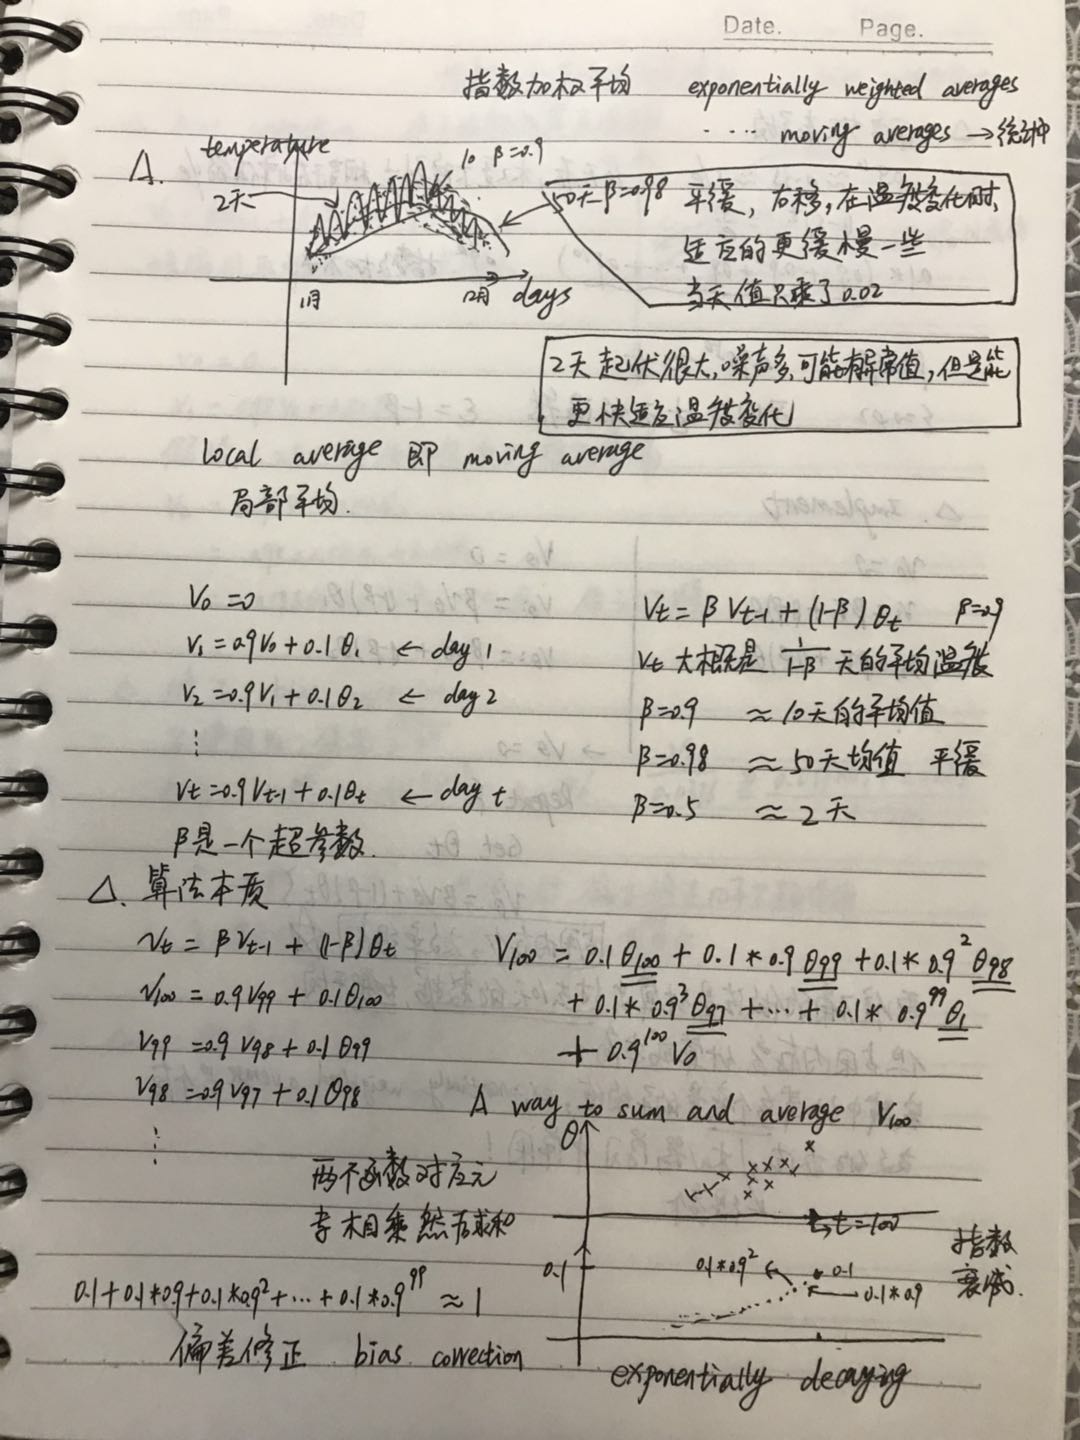 Date. Page.
指数加权平均 exponentially weighted averages
.... moving averages → 统计中
△. temperature
2天
10 β=0.9
50天 β=0.98 平缓, 右移, 在温度变化时,
适应的更缓慢一些
当天值只乘了0.02
1月 12月 days
2天起伏很大, 噪声多, 可能有异常值, 但是能
更快适应温度变化
local average 即 moving average
局部平均.
V₀ = 0
V₁ = 0.9V₀ + 0.1θ₁ ← day 1
V₂ = 0.9V₁ + 0.1θ₂ ← day 2
⋮
Vt = 0.9Vt-1 + 0.1θt ← day t
β是一个超参数.
Vt = βVt-1 + (1-β)θt β=0.9
Vt 大概是 1/(1-β) 天的平均温度
β=0.9 ≈ 10天的平均值
β=0.98 ≈ 50天均值 平缓
β=0.5 ≈ 2天
△. 算法本质
Vt = βVt-1 + (1-β)θt
V₁₀₀ = 0.9V₉₉ + 0.1θ₁₀₀
V₉₉ = 0.9V₉₈ + 0.1θ₉₉
V₉₈ = 0.9V₉₇ + 0.1θ₉₈
⋮
V₁₀₀ = 0.1θ₁₀₀ + 0.1*0.9θ₉₉ + 0.1*0.9²θ₉₈
+ 0.1*0.9³θ₉₇ + ... + 0.1*0.9⁹⁹θ₁
+ 0.9¹⁰⁰V₀
A way to sum and average V₁₀₀
两个函数对应元
素相乘然后求和
0.1+0.1*0.9+0.1*0.9²+...+0.1*0.9⁹⁹ ≈ 1
偏差修正 bias correction
θ
t=100
0.1
0.1*0.9²
0.1
0.1*0.9
指数
衰减.
exponentially decaying